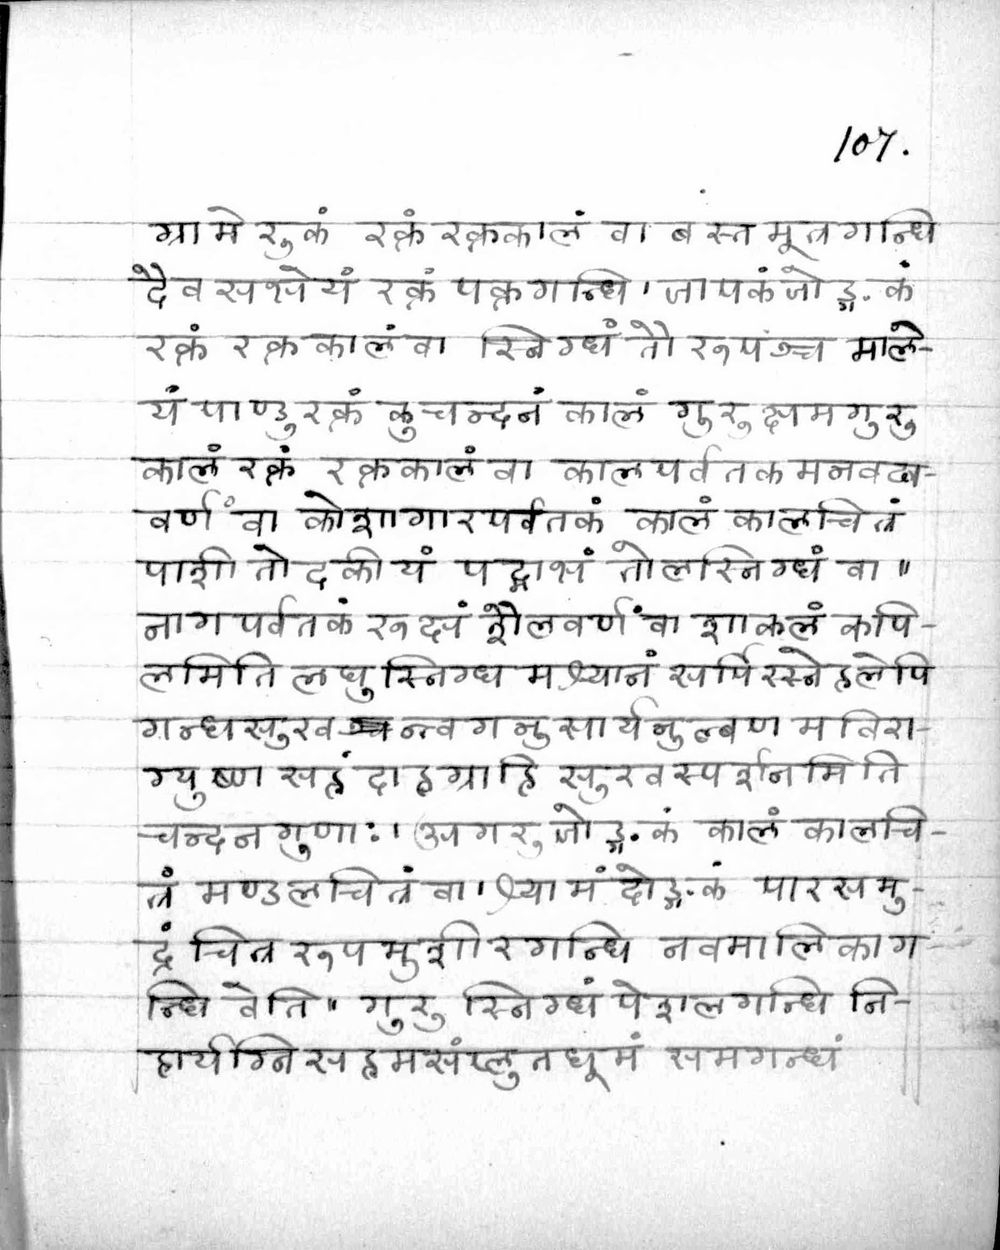 107.
ग्रामेरुकं रक्तं रक्तकालं वा बस्तमूत्रगन्धि
दैवसभेयं रक्तं पद्मगन्धि। जापकं जोङ्गकं
रक्तं रक्तकालं वा स्निग्धं तौरूपञ्च माले-
यं पाण्डुरक्तं कुचन्दनं कालं गुरुक्षमगुरु
कालं रक्तं रक्तकालं वा कालपर्वतकमनवद्य-
वर्णं वा कोशागारपर्वतकं कालं कालचित्रं
पाशीतोदकीयं पद्माभं तोलस्निग्धं वा॥
नागपर्वतकं रूक्षं शैलवर्णं वा शाकलं कपि-
लमिति लघुस्निग्धमश्यानं सर्पिरस्नेहलेपि
गन्धसुखन्त्वगनुसार्यनुल्बणमविरा-
ग्युष्णसहं दाहग्राहि सुखस्पर्शनमिति
चन्दनगुणाः। अगरु जोङ्गकं कालं कालचि-
त्रं मण्डलचित्रं वा। श्यामं दोङ्गकं पारसमु-
द्रं चित्ररूपमुशीरगन्धि नवमालिकाग
न्धि वेति॥ गुरु स्निग्धं पेशलगन्धि नि-
हार्यग्निसहमसंप्लुतधूमं समगन्धं